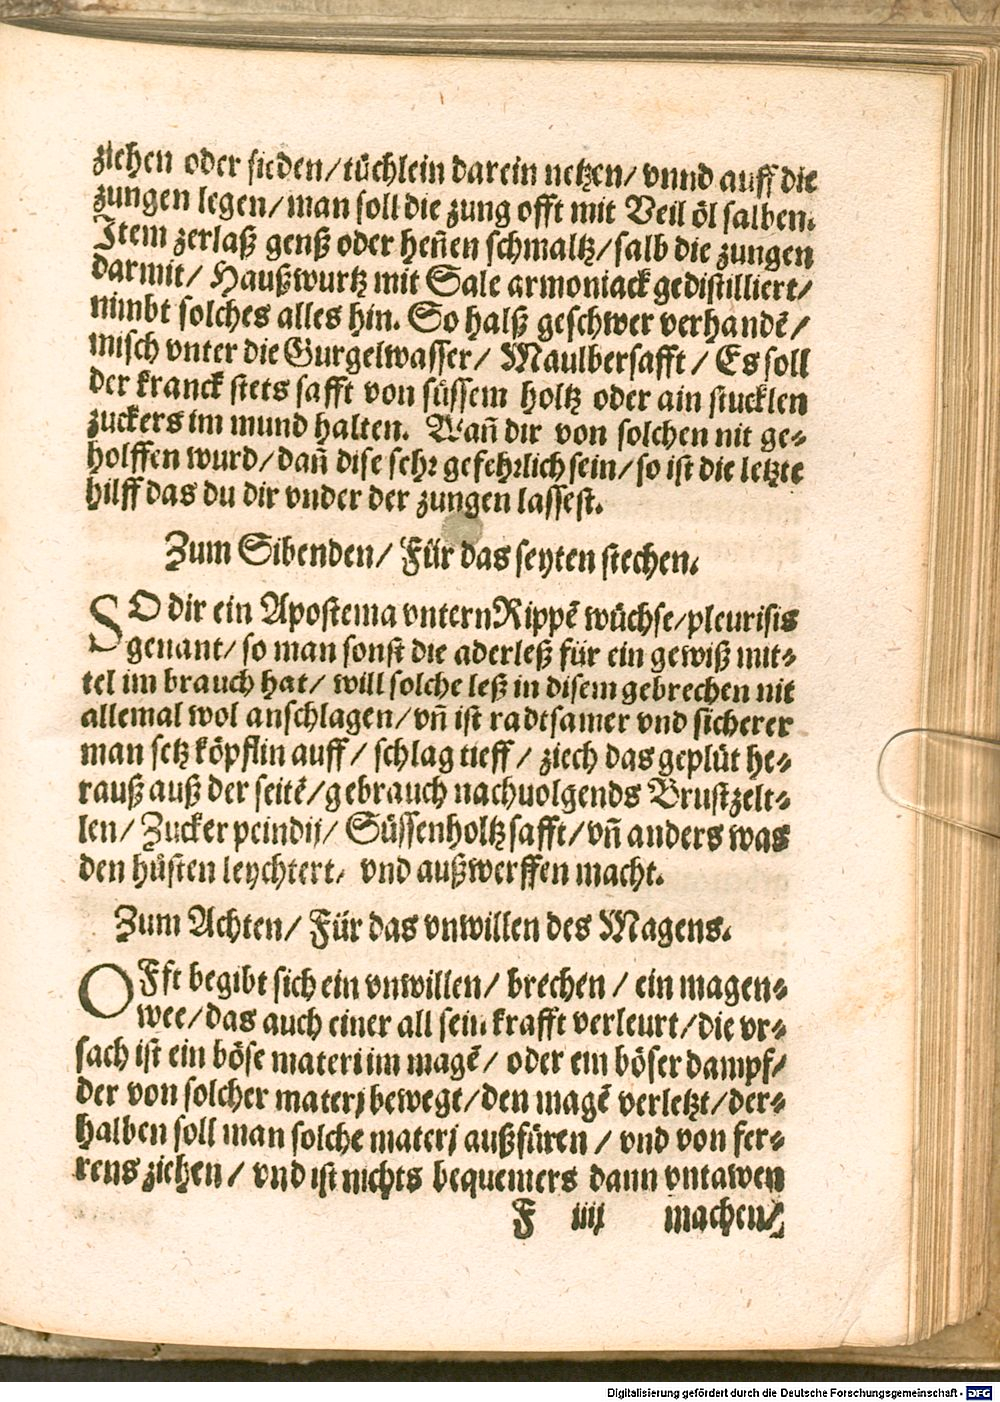 ziehen oder sieden/ tüchlein darein netzen/ vnnd auff die
zungen legen/ man soll die zung offt mit Veil öl salben.
Item zerlaß genß oder heñen schmaltz/ salb die zungen
darmit/ Haußwurtz mit Sale armoniack gedistilliert/
nimbt solches alles hin. So halß geschwer verhandẽ/
misch vnter die Gurgelwasser/ Maulbersafft/ Es soll
der kranck stets safft von süssem holtz oder ain stucklen
zuckers im mund halten. Wañ dir von solchen nit ge-
holffen wurd/ dañ dise sehr gefehrlich sein/ so ist die letzte
hilff das du dir vnder der zungen lassest.
Zum Sibenden/ Für das seyten stechen.
SO dir ein Apostema vntern Rippẽ wüchse/ pleurisis
genant/ so man sonst die aderleß für ein gewiß mit-
tel im brauch hat/ will solche leß in disem gebrechen nit
allemal wol anschlagen/ vñ ist radtsamer vnd sicherer
man setz köpflin auff/ schlag tieff/ ziech das geplüt he-
rauß auß der seitẽ/ gebrauch nachuolgends Brustzelt-
len/ Zucker peindij/ Süssenholtz safft/ vñ anders was
den hüsten leychtert, vnd außwerffen macht.
Zum Achten/ Für das vnwillen des Magens.
OFft begibt sich ein vnwillen/ brechen/ ein magen-
wee/ das auch einer all sein krafft verleurt/ die vr-
sach ist ein böse materi im magẽ/ oder ein böser dampf/
der von solcher materj bewegt/ den magẽ verletzt/ der-
halben soll man solche materj außfüren/ vnd von fer-
rens ziehen/ vnd ist nichts bequemers dann vntawen
F iiij machen/
Digitalisierung gefördert durch die Deutsche Forschungsgemeinschaft - DFG